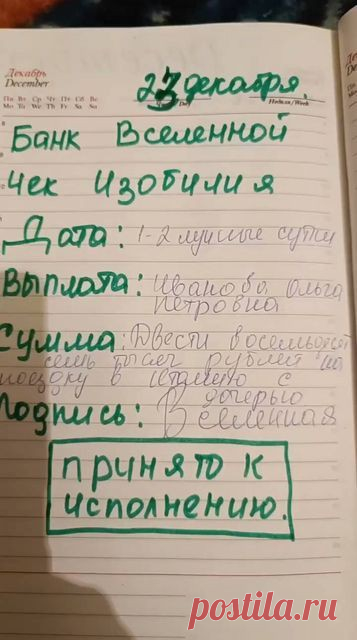 Декабрь
December
Пн Вт Ср Чт Пт Сб Вс
Mo Tu We Th Fr Sa Su
23 декабря.
Day
Неделя/Week
Банк Вселенной
Чек Изобилия
Дата: 1-2 лунные сутки
Выплата: Иванова Ольга
Петровна
Сумма: Двести восемьдесят
семь тысяч рублей на
поездку в Италию с
дочерью
Подпись: Вселенная
принято к
исполнению.
postila.ru